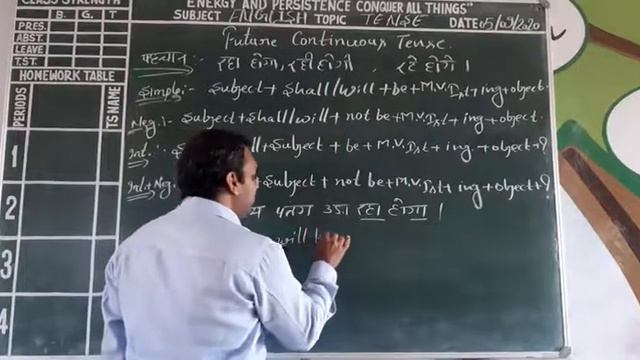 CLASS STRENGTH
B. G. T
PRES.
ABST.
LEAVE
T.ST.
HOMEWORK TABLE
PERIODS
TS NAME
1
2
3
4
ENERGY AND PERSISTENCE CONQUER ALL THINGS"
SUBJECT ENGLISH TOPIC TENSE DATE 05/09/2020
Future Continuous Tense.
पहचान :- रहा होगा, रही होगी, रहे होंगे।
Simple :- Subject + Shall/will + be + M.V. Ist + ing + object.
Neg. :- Subject + Shall/will + not be + M.V. Ist + ing + object.
Int. :- + Subject + be + M.V. Ist + ing + object + ?
Int + Neg. Subject + not be + M.V. Ist + ing + object + ?
पतंग उड़ा रहा होगा।
will